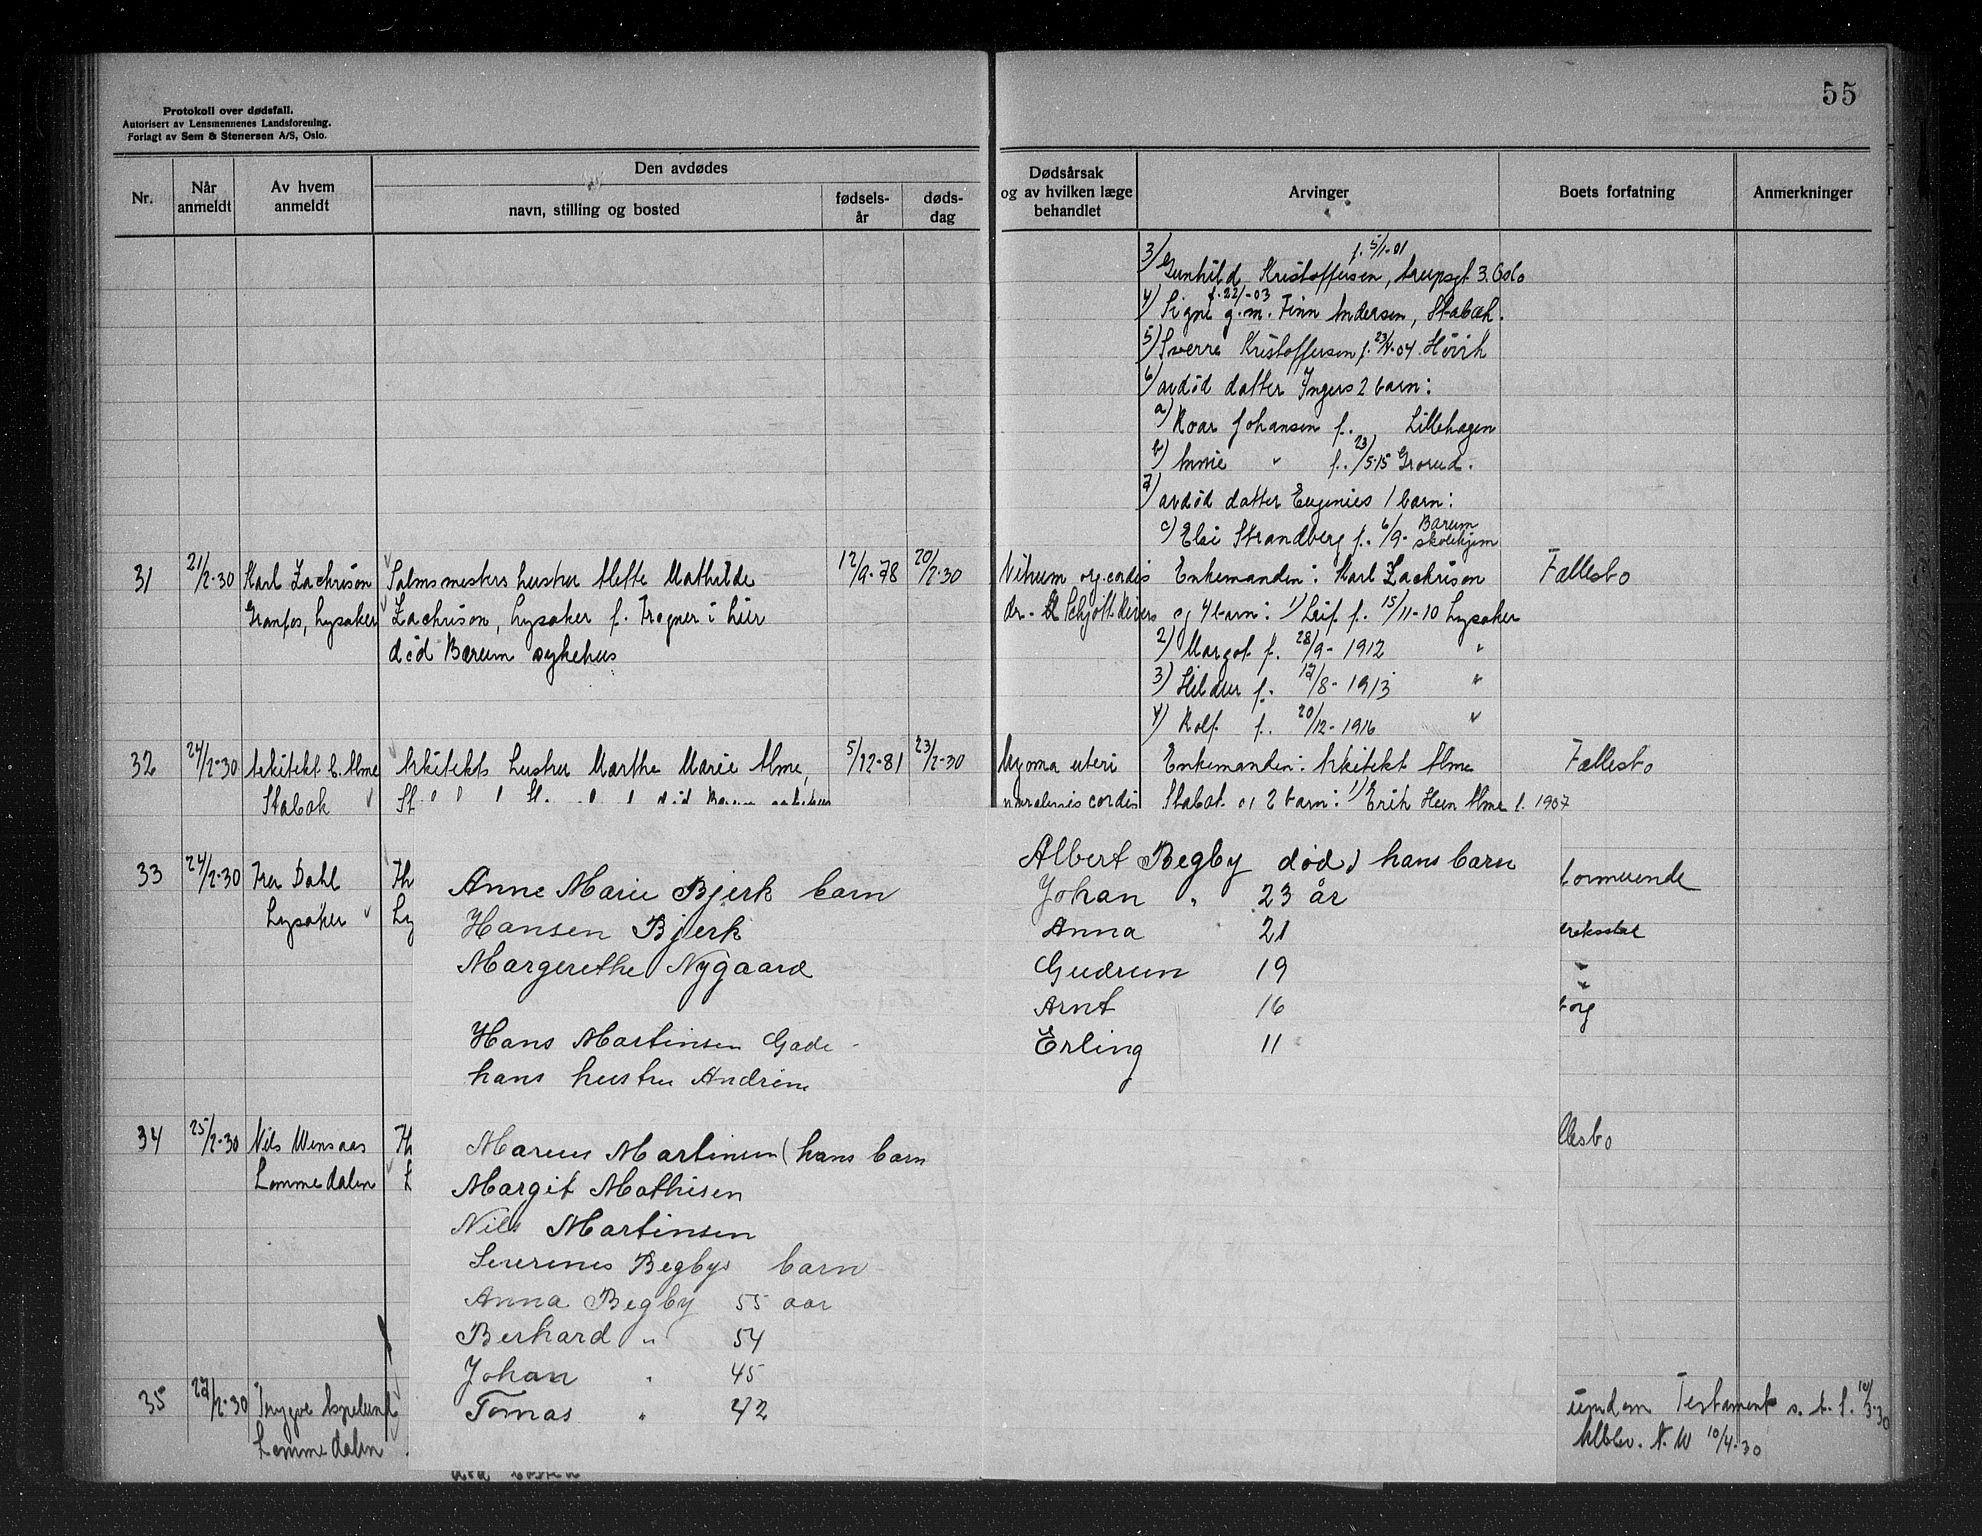 55
Protokoll over dødsfall.
Autorisert av Lensmennenes Landsforening.
Forlagt av Sem & Stenersen A/S, Oslo.
Nr.
Når anmeldt
Av hvem anmeldt
Den avdødes
navn, stilling og bosted
fødsels-år
døds-dag
Dødsårsak og av hvilken læge behandlet
Arvinger
Boets forfatning
Anmerkninger
f. 5/1-01
3) Gunhild Kristoffersen, 3. Oslo
f. 22/-03
4) Signe g.m. Finn Andersen, Stabæk.
5) Sverre Kristoffersen f. 04. Høvik
6) avdød datter Ingers 2 barn:
a) Roar Johansen f. Lillehagen
b) " f. 23/5-15 Grorud.
7) avdød datter Eugenies 1 barn:
c) Elsi Strandberg f. 6/9- Bærum skolehjem
31 21/2-30 Karl Zachrison Mathilde 12/9-78 20/2-30 cordis Enkemanden: Karl Zachrison Fællesbo
Granfos, Lysaker Zachrison, Lysaker f. Trogner i hier dr. og 4 barn: 1) Leif f. 15/11-10 Lysaker
død Bærum sykehus 2) Margot f. 28/9-1912 "
3) Hildur f. 17/8-1913 "
4) Rolf f. 20/12-1916 "
32 24/2-30 Arkitekt E. Alme Arkitekts hustru Marthe Marie Alme, 5/12-81 23/2-30 Myoma uteri Enkemanden: Arkitekt Alme Fællesbo
Stabæk cordis Stabæk og 2 barn: 1) Erik Alme f. 1907
33 24/2-30 Fru Dahl
Lysaker
Anne Marie Bjerk barn
Hansen Bjerk
Margerethe Nygaard
Hans Martinsen Gade
hans hustru Andrine
Albert Begby død) hans barn
Johan " 23 år
Anna 21
Gudrun 19
Arnt 16
Erling 11
formuende
34 25/2-30 Nils Wensaas
Lommedalen
llesbo
Marius Martinsen (hans barn
Margit Mathisen
Nils Martinsen
Severines Begbys barn
Anna Begby 55 aar
Berhard " 54
Johan " 45
Tomas " 42
35 27/2-30 Trygve
Lommedalen
Testament s. t. f. 10/3-30
N. W 10/4-30
død bosted